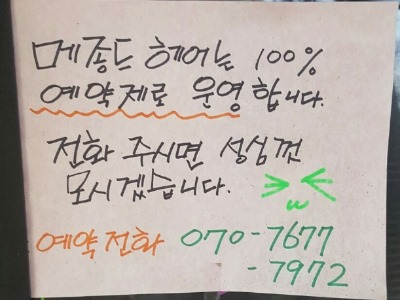 메종드 헤어는 100%
예약제로 운영합니다.
전화 주시면 성심껏
모시겠습니다.
예약전화 070-7677
-7972